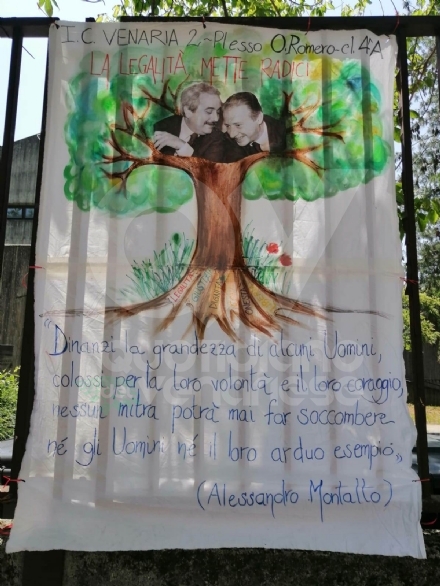 I.C. VENARIA 2 - Plesso O. Romero - cl. 4ªA
LA LEGALITÀ METTE RADICI
"Dinanzi la grandezza di alcuni Uomini,
colossi per la loro volontà e il loro coraggio,
nessun mitra potrà mai far soccombere
né gli Uomini né il loro arduo esempio"
(Alessandro Montalto)